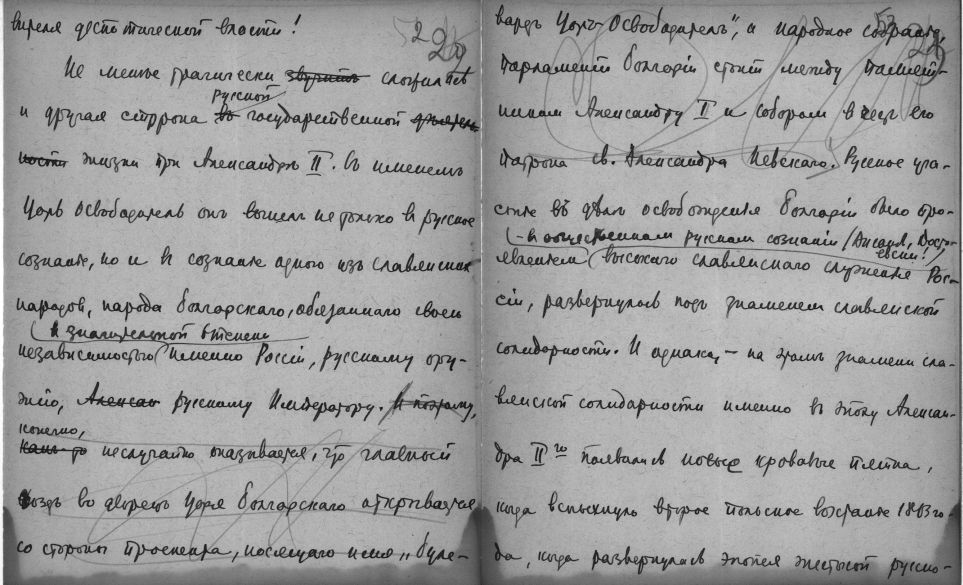 вителя деспотической власти!
29
Не менее трагически звучитъ сложилась
русской
и другая сторона во государственной дѣятель-
ности жизни при Александрѣ II. Съ именемъ
Царь Освободитель онъ вошелъ не только в русское
сознанье, но и в сознанье одного изъ славянских
народов, народа болгарскаго, обязаннаго своею
в значительной степени
независимостью именно Россіи, русскому ору-
жію, Алексан русскому Императору. И поэтому,
конечно,
какъ то неслучайно оказывается, что главный
входъ во дворецъ Царя Болгарскаго открывается
со стороны проспекта, носящаго имя „буле-
53
варъ Царь-Освободитель", и народное собранье,
парламент Болгаріи стоит между памят-
никам Александру II и собором в честь его
патрона св. Александра Невскаго. Русское уча-
стіе въ дѣлѣ освобожденья Болгаріи было про-
– в общественном русском сознаніи (Аксаков, Досто-
евскій!)
явленьем высокаго славянскаго служенья Рос-
сіи, развернулось подъ знаменем славянской
солидарности. И однако, – на этомъ знамени сла-
вянской солидарности именно въ эпоху Алексан-
дра II го появились новые кровавые пятна,
когда вспыхнуло второе польское возстанье 1863 го-
да, когда развернулась эпопея жестокой русско-